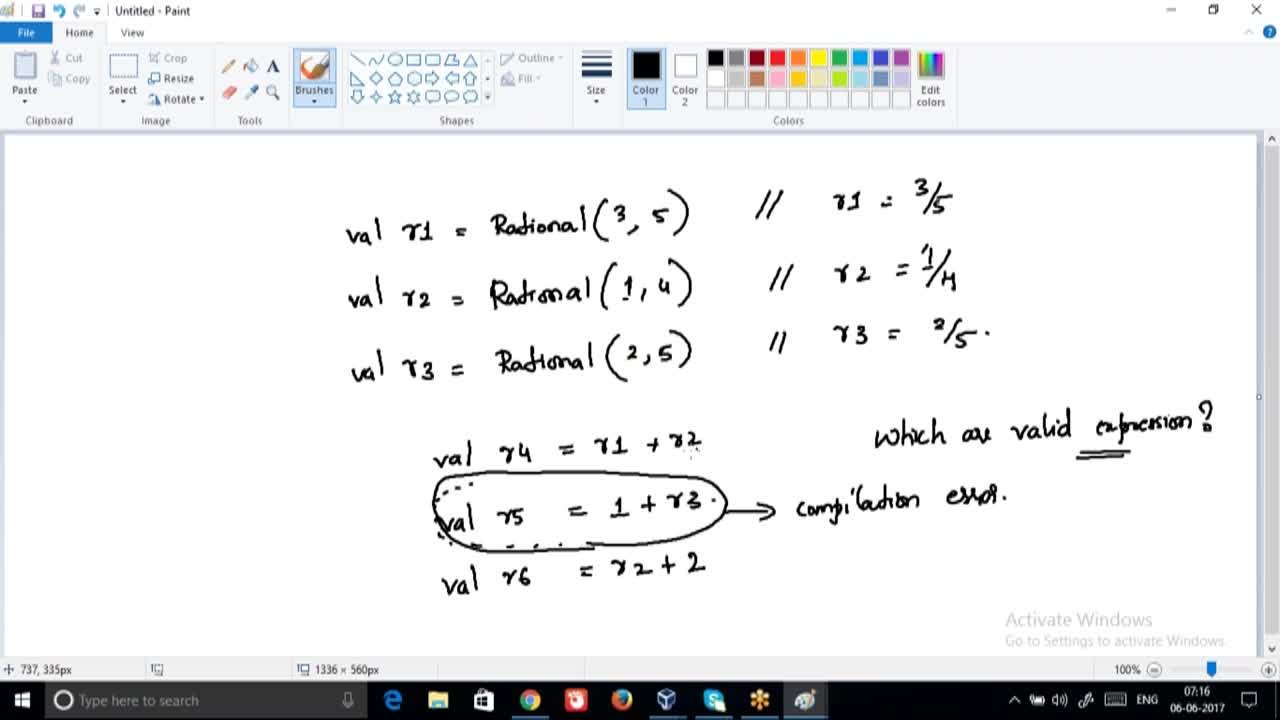 Untitled - Paint
File Home View
Paste Cut Copy Select Crop Resize Rotate Brushes Outline Fill Size Color 1 Color 2 Edit colors
Clipboard Image Tools Shapes Colors
val r1 = Rational(3, 5) // r1 = 3/5
val r2 = Rational(1, 4) // r2 = 1/4
val r3 = Rational(2, 5) // r3 = 2/5.
which are valid expression?
val r4 = r1 + r2
val r5 = 1 + r3. → compilation error.
val r6 = r2 + 2
Activate Windows
Go to Settings to activate Windows.
737, 335px 1336 × 560px 100%
Type here to search ENG 07:16
06-06-2017